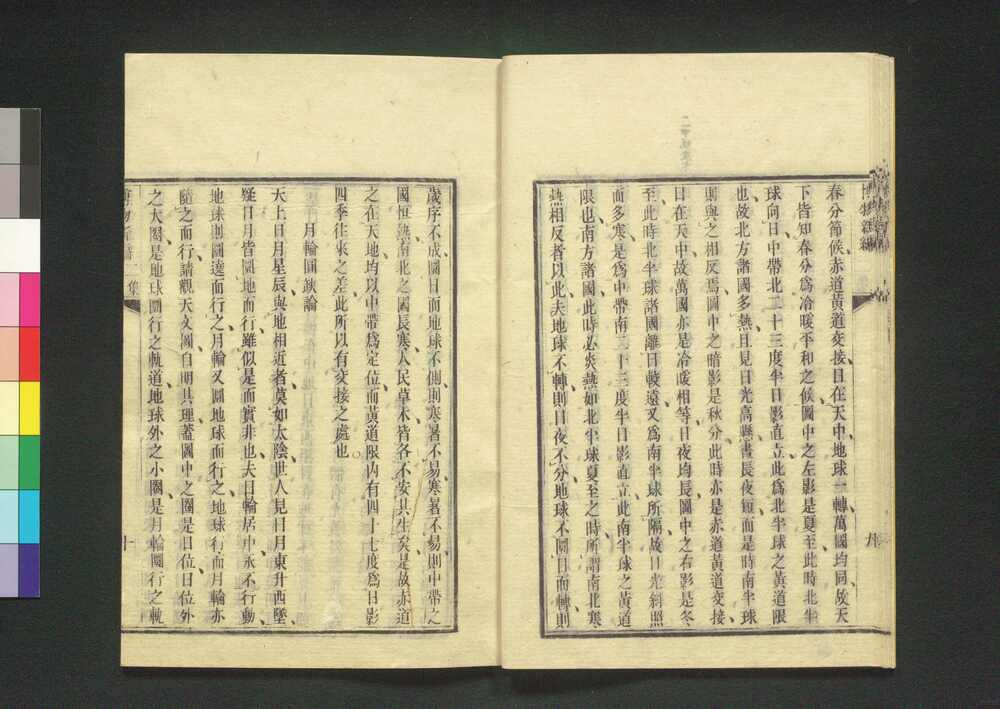 春分節候、赤道黃道交接、日在天中、地球一轉、萬國均同、故天
下皆知春分爲冷暖平和之候、圖中之左影是夏至、此時北半
球向日、中帶北二十三度半日影直立、此爲北半球之黃道限
也、故北方諸國多熱、且見日光高懸、晝長夜短、而是時南半球
則與之相反焉、圖中之暗影是秋分、此時亦是赤道黃道交接、
日在天中、故萬國亦是冷暖相等、日夜均長、圖中之右影是冬
至、此時北半球諸國離日較遠、又爲南半球所隔、故日光斜照
而多寒、是爲中帶南二十三度半日影直立、此南半球之黃道
限也、南方諸國、此時必炎熱、如北半球夏至之時、所謂南北寒
熱相反者以此、夫地球不轉、則日夜不分、地球不圜日而轉、則
歲序不成、圜日而地球不側、則寒暑不易、寒暑不易、則中帶之
國恒熱、南北之國長寒、人民草木、皆各不安其生矣、是故赤道
之在天地、均以中帶爲定位、而黃道限內有四十七度爲日影
四季往來之差、此所以有交接之處也。
月輪圓缺論
天上日月星辰與地相近者、莫如太陰、世人見日月東升西墜、
疑日月皆圜地而行、雖似是而實非也、夫日輪居中、永不行動、
地球則圜遶而行之、月輪又圜地球而行之、地球行而月輪亦
隨之而行、請觀天文圖、自明其理、蓋圖中之圈、是日位、日位外
之大圈、是地球圜行之軌道、地球外之小圈、是月輪圜行之軌
博物新編二集
十